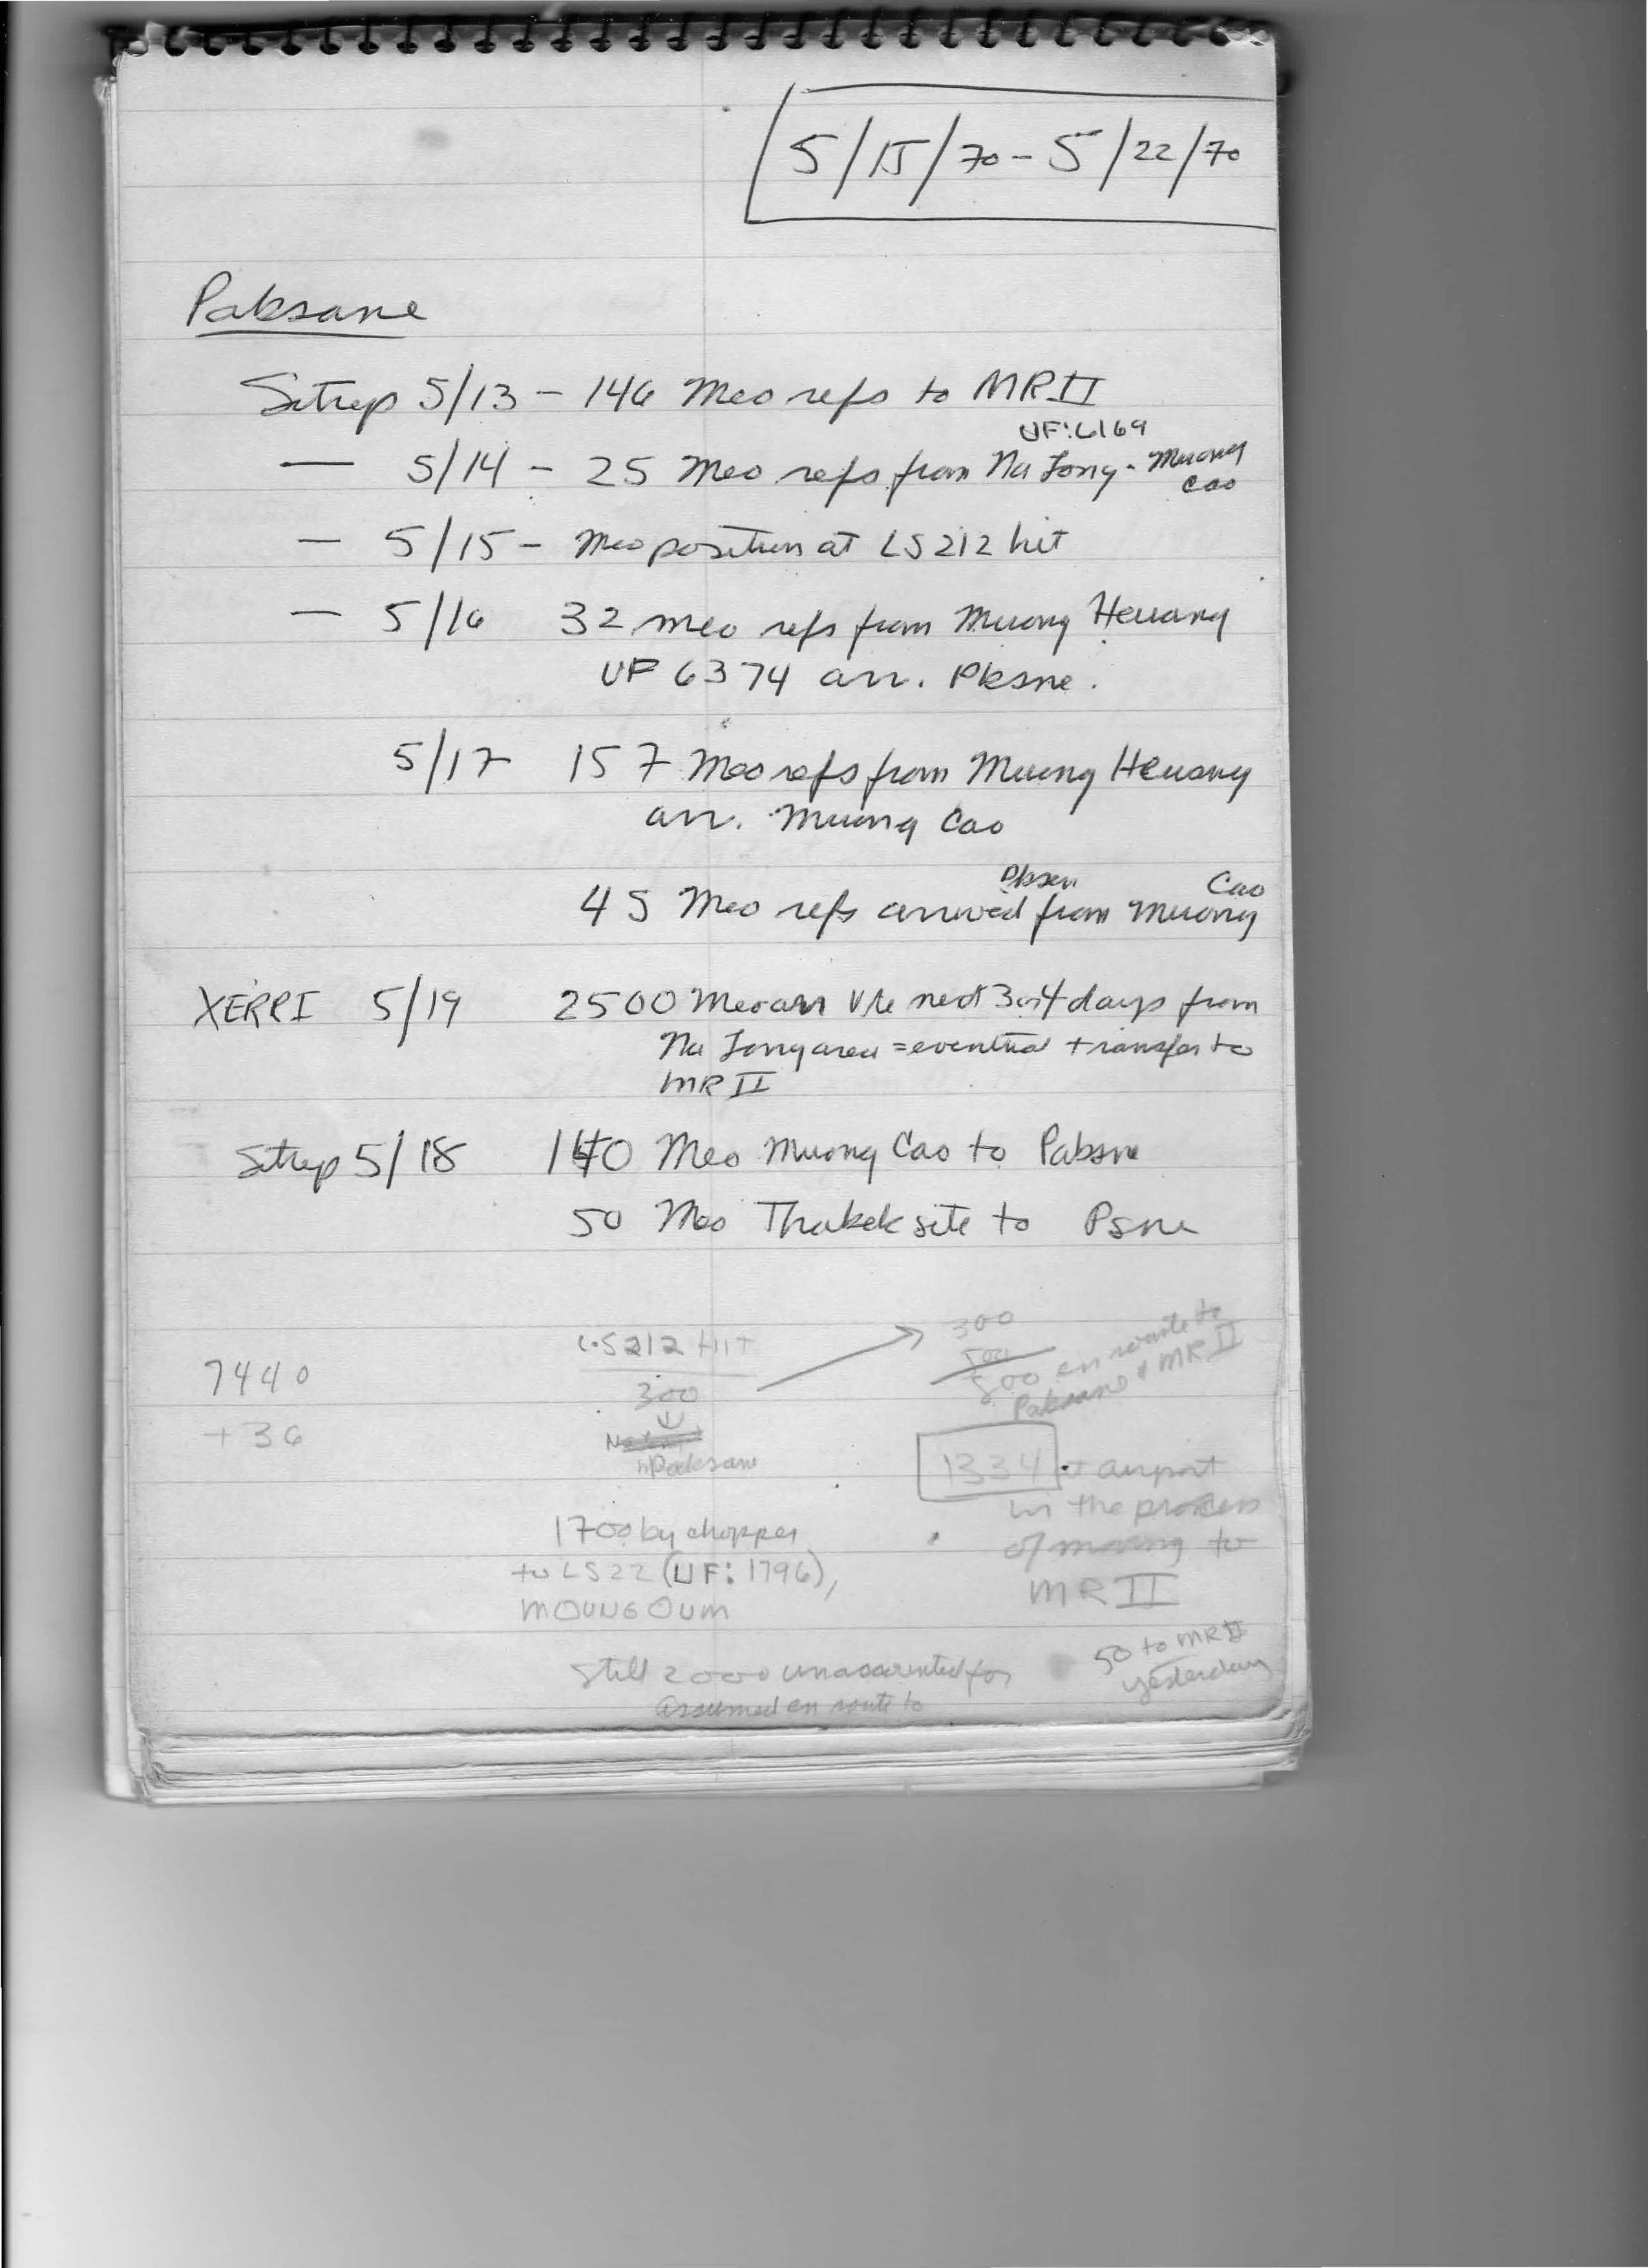 5/15/70 - 5/22/70
Paksane
Sitrep 5/13 - 146 Meo refs to MR II
UF:6169
— 5/14 - 25 Meo refs from Na Tong - Muong
Cao
— 5/15 - Meo position at LS 212 hit
— 5/16 32 meo refs from Muong Heuang
UF 6374 arr. Pksne.
5/17 157 Meo refs from Muong Heuang
arr. Muong Cao
Pksen Cao
45 Meo refs arrived from Muong
XERRI 5/19 2500 Meo arr next 3 or 4 days from
Na Tong area = eventual transfer to
MR II
Sitrep 5/18 140 Meo Muong Cao to Paksne
50 Meo Thakek site to Psne
LS212 HIT
300
300
500
800 en route to
Paksane & MR II
7440
+36
Paksane
1334 at airport
in the process
of moving to
MR II
1700 by chopper
to LS22 (UF: 1796),
MOUNG OUM
50 to MR II
yesterday
Still 2000 unaccounted for
assumed en route to